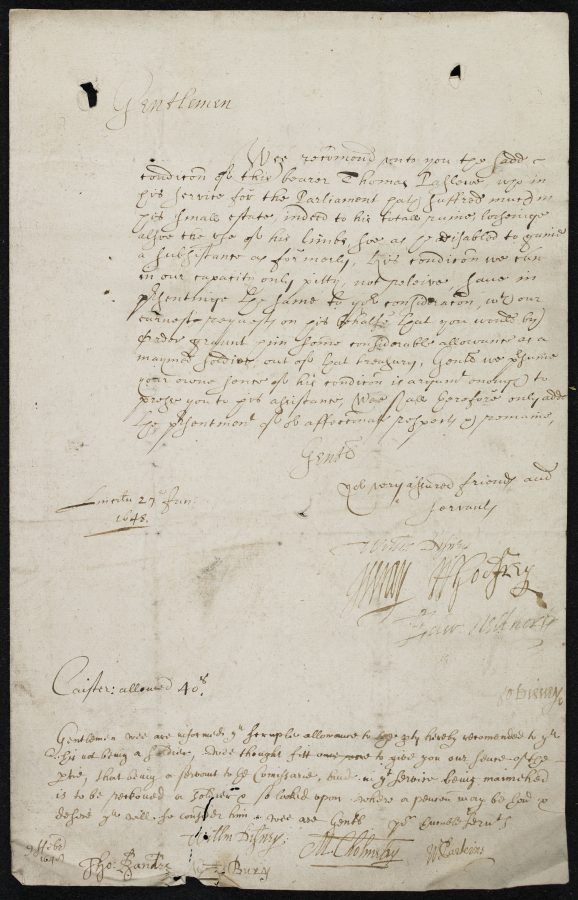 Gentlemen
Wee recomend unto you the sadd
condicon of this bearer Thomas Paslewe, who in
his service for the Parliament hath suffred much in
his small estate, indeed to his totall ruine, loseinge
alsoe the use of his limbs soe as hee is disabled to gaine
a subsistance as formerly, his condicon we can
in our capacity only pitty, not releive, have in
psentinge the same to yor consideracon, wth our
earnest request on his behalfe that you would by
Order graunt him some considerable allowance as a
maymed soldier out of that treasury, Gents we psume
your owne sence of his condicon is argumt enough to
presse you to his assistance, Wee shall therefore only adde
the psentment of or affectionate respects & remaine,
Gents
yor very assured friends and
servants
Lincoln 27o Jan
1648.
Willm Disney
Caister: allowed 40s.
Gentlemen wee are informed yu scruple allowance to the pty hereby recomended to yu
his not being a soldier, wee thought fitt to give you our sence of the
ptie, that being a servant to the Comissarie, and in ye service being maimed
is to be reckoned a soldier & so looked upon where a pension may be had &
desire yu will so consider him wee are Gents yor humble servts
Willm Disney:
M Cholmley
Tho:
Bury
1648